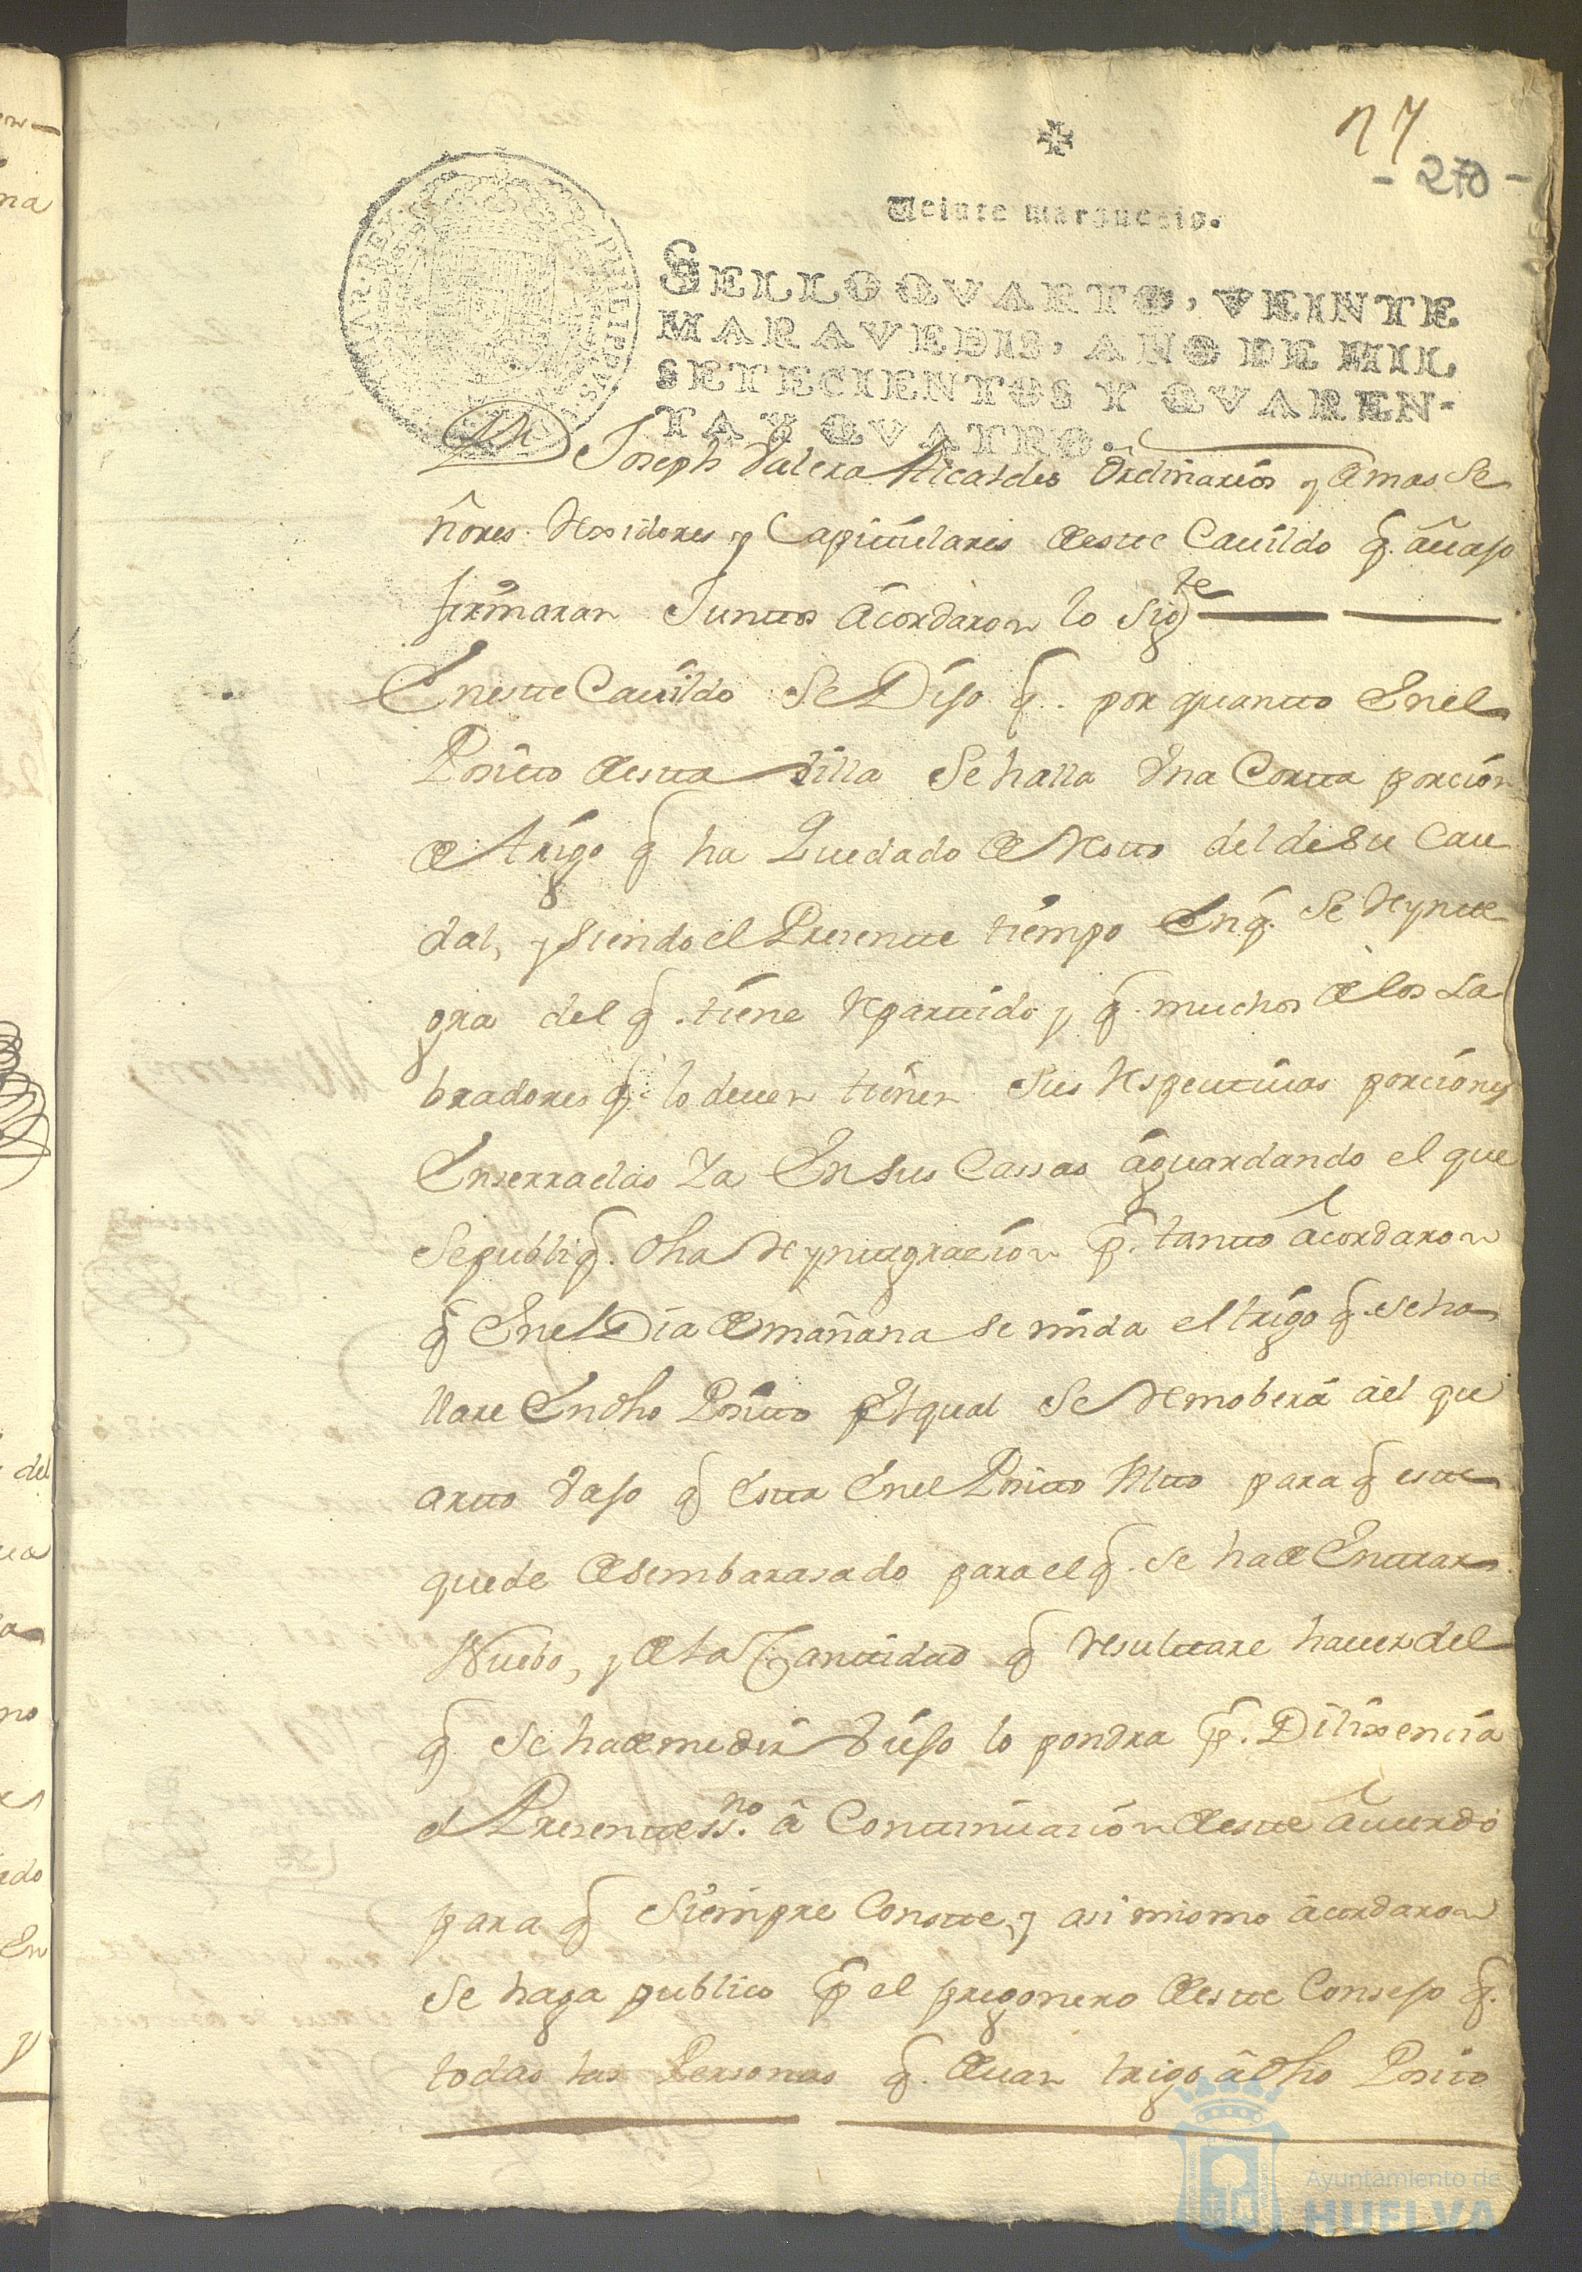 27
- 270 -
Veinte maravedis.
SELLO QVARTO, VEINTE
MARAVEDIS, AÑO DE MIL
SETECIENTOS Y QVAREN-
TA Y QVATRO.
PHILIPPVS
Dn Joseph Valera Alcaldes Ordinarios y demas Se
ñores Rexidores y Capitulares de este Cavildo q. avajo
firmaran Juntos acordaron lo sigte
En este Cavildo Se Dijo q. por quanto En el
Posito de esta Villa Se halla Vna Corta porcion
de trigo q ha Quedado de Resto del de su Cau
dal, y siendo el Presente tiempo En q. Se Reynte
gra del q. tiene Repartido y q. muchos de los La
bradores q. lo deven tienen Sus Respectivas porciones
Enserradas Ya En sus Cassas aguardando el que
Se publiq. dha Reyntegracion p. tanto acordaron
q En el Dia de mañana se mida el trigo q. se ha
llare En dho Posito El qual Se Remoberá ael qu
arto Vajo q Esta En el Posito Alto para q este
quede desembarasado para el q. se ha de Entrar
Nuebo, y de la Cantidad q resultare haver del
q se ha de medir Viejo lo pondra p. Dilixencia
el Presente ssno. â Continuacion de este acuerdo
para q Siempre Conste, y asi mismo acordaron
Se haga publico p el pregonero de este Consejo q.
todas las Personas q. devan trigo â dho Posito
Ayuntamiento de
HUELVA